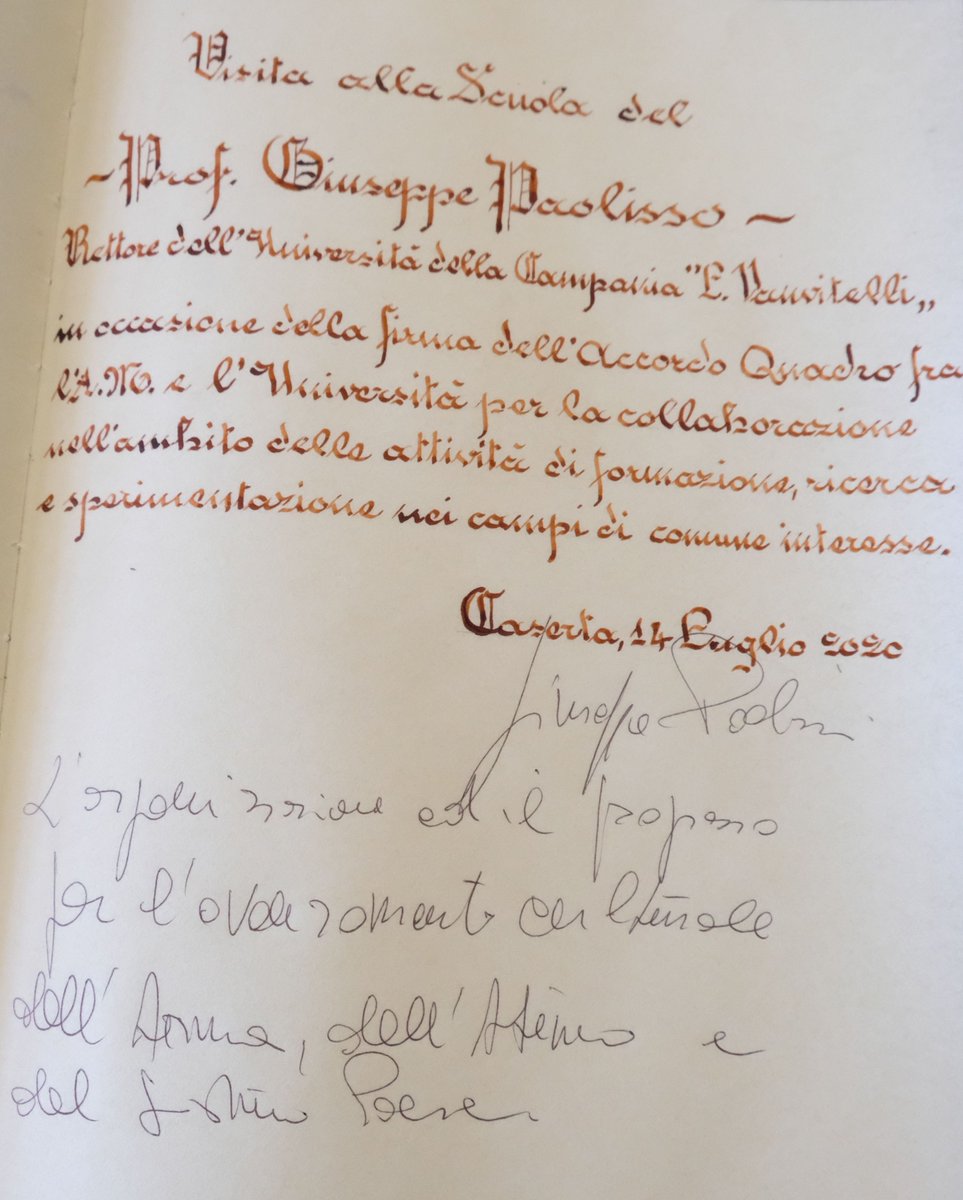 Visita alla Scuola del
~ Prof. Giuseppe Paolisso ~
Rettore dell'Università della Campania "L. Vanvitelli„
in occasione della firma dell'Accordo Quadro fra
l'A.M. e l'Università per la collaborazione
nell'ambito delle attività di formazione, ricerca
e sperimentazione nei campi di comune interesse.
Caserta, 14 Luglio 2020
Giuseppe Paolisso
L'organizzazione ed il progresso
per l'avanzamento culturale
dell'Arma, dell'Ateneo e
del Paese